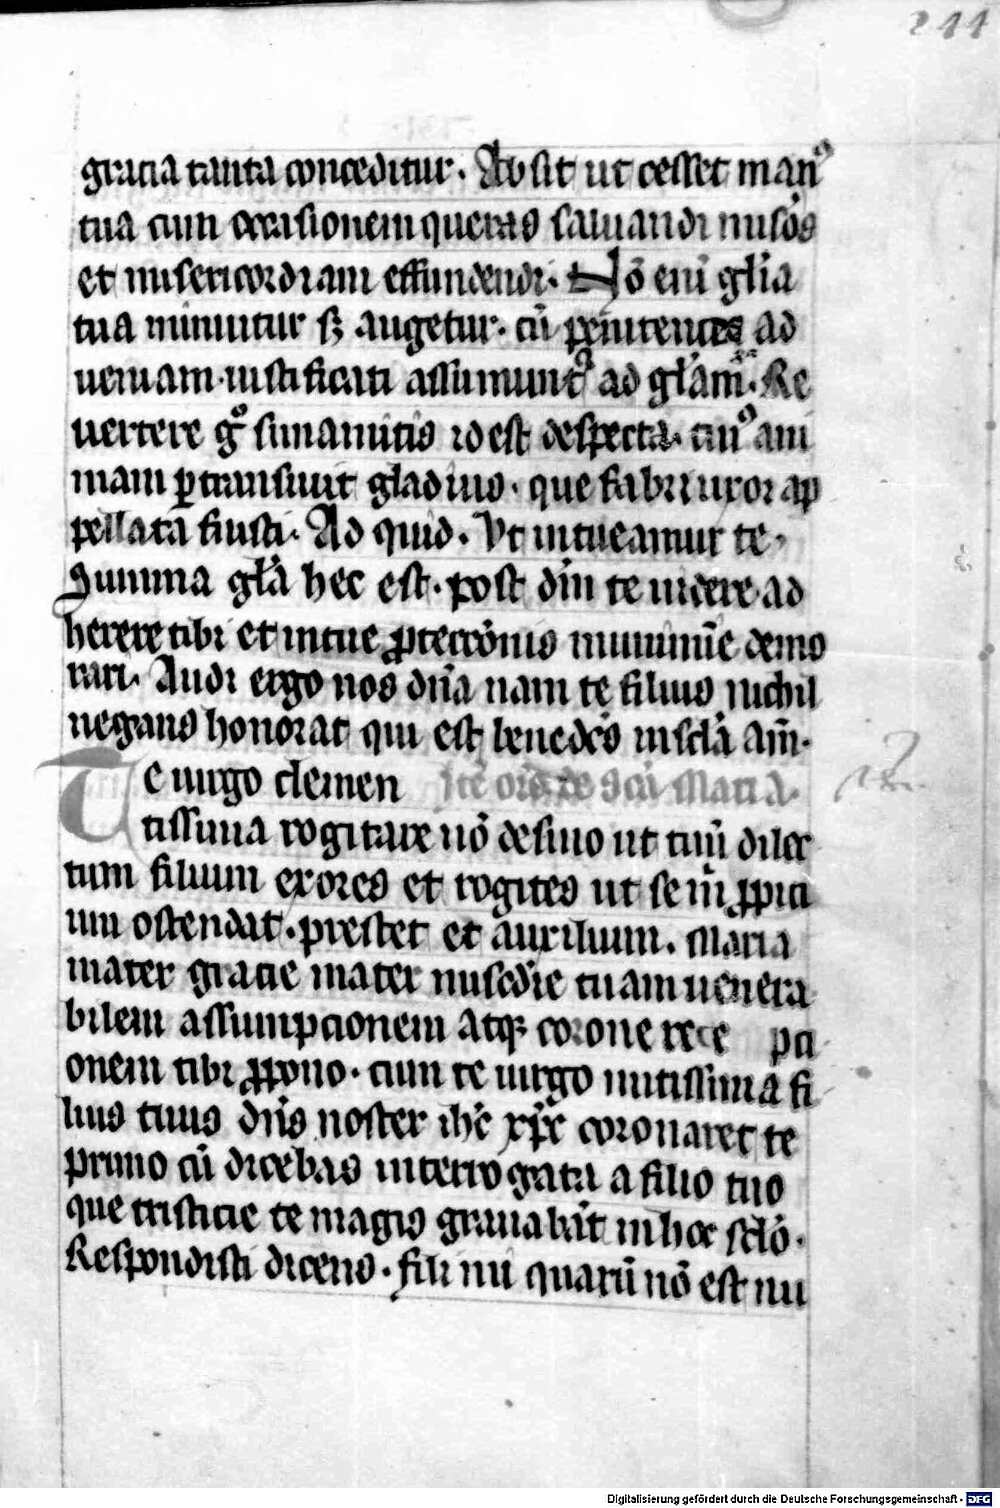 244
gracia tanta conceditur. Absit ut cesset man⁹
tua cum occasionem queras saluandi misōs
et misericordiam effundendi. Nō enī gl'ia
tua minuitur sȝ augetur. cū penitentes ad
ueniam iustificati assumunt᷑ ad gl'am. Re
uertere gͦ sunamitis id est despecta. cui⁹ ani
mam ꝑtransiuit gladius. que fabri uxor ap
pellata fuisti. Ad quid. Vt intueamur te.
Summa gl'a hec est. post dm̄ te uidere ad
herere tibi et in tue ꝓteccōnis munimīe demo
rari. Audi ergo nos dn̄a nam te filius nichil
negans honorat qui est benedcūs in scl'a am̄.
Te uirgo clemen Itē orō de scā Maria.
tissima rogitare nō desino ut tuū dilec
tum filium exores et rogites ut se m̄ ꝓpici
um ostendat. prestet et auxilium. Maria
mater gracie mater misc̄die tuam uenera
bilem assumpcionem atqꝫ corone rece pci
onem tibi ꝓpono. cum te uirgo mitissima fi
lius tuus dn̄s noster ihc̄ xp̄c coronaret te
primo cū dicebas interrogata a filio tuo
que tristicie te magis grauabāt in hoc sclō.
Respondisti dicens. fili mi quarū nō est nu